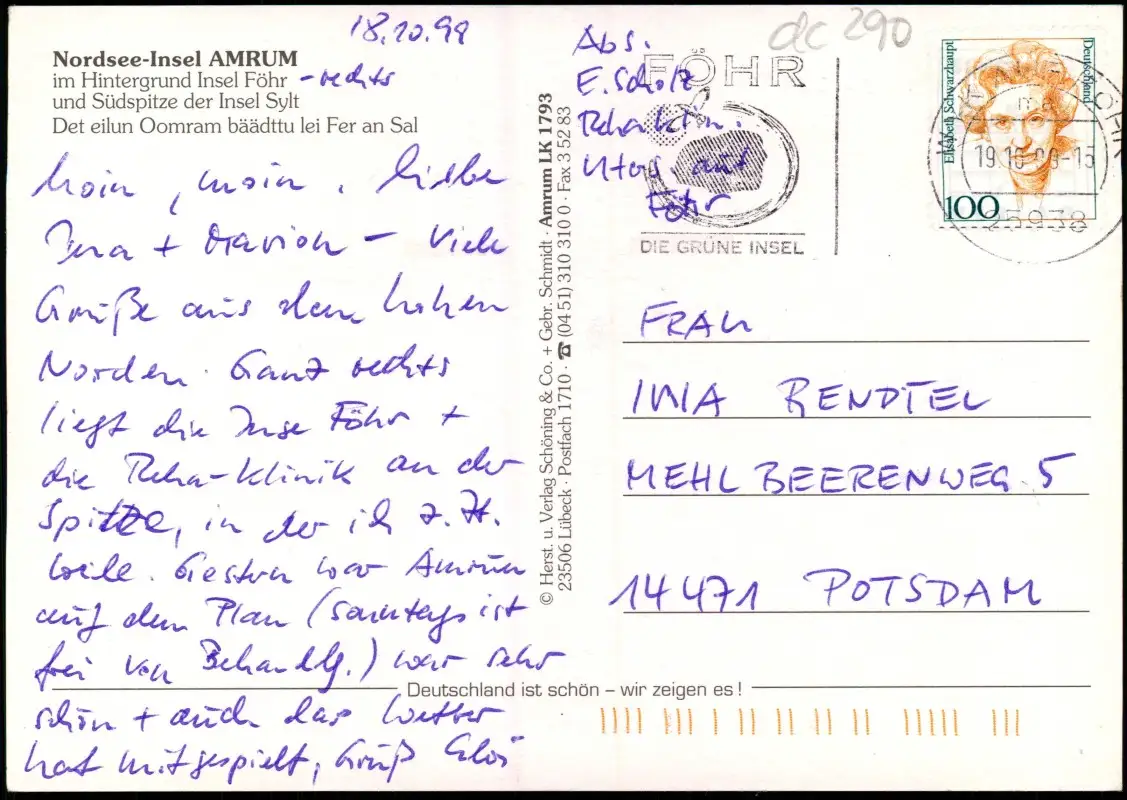 18.10.99
Nordsee-Insel AMRUM
im Hintergrund Insel Föhr - rechts
und Südspitze der Insel Sylt
Det eilun Oomram bäädttu lei Fer an Sal
moin, moin, liebe
Ina + Marion - Viele
Grüße aus dem hohen
Norden. Ganz rechts
liegt die Insel Föhr +
die Reha-Klinik an der
Spitze, in der ich z. Zt.
weile. Gestern war Amrum
auf dem Plan (Sonntags ist
frei von Behandlg.) war sehr
schön + auch das Wetter
hat mitgespielt, Gruß
© Herst. u. Verlag Schöning & Co. + Gebr. Schmidt · Amrum LK 1793
23506 Lübeck · Postfach 1710 · ☎ (04 51) 310 310 0 · Fax 3 52 83
Abs.
E. Scholz
Reha klin.
Uters. auf
Föhr
dc 290
FÖHR
DIE GRÜNE INSEL
Elisabeth Schwarzhaupt
Deutschland
100
19.10.99-15
25938
FRAU
INA RENDTEL
MEHLBEERENWEG 5
14471 POTSDAM
Deutschland ist schön – wir zeigen es!